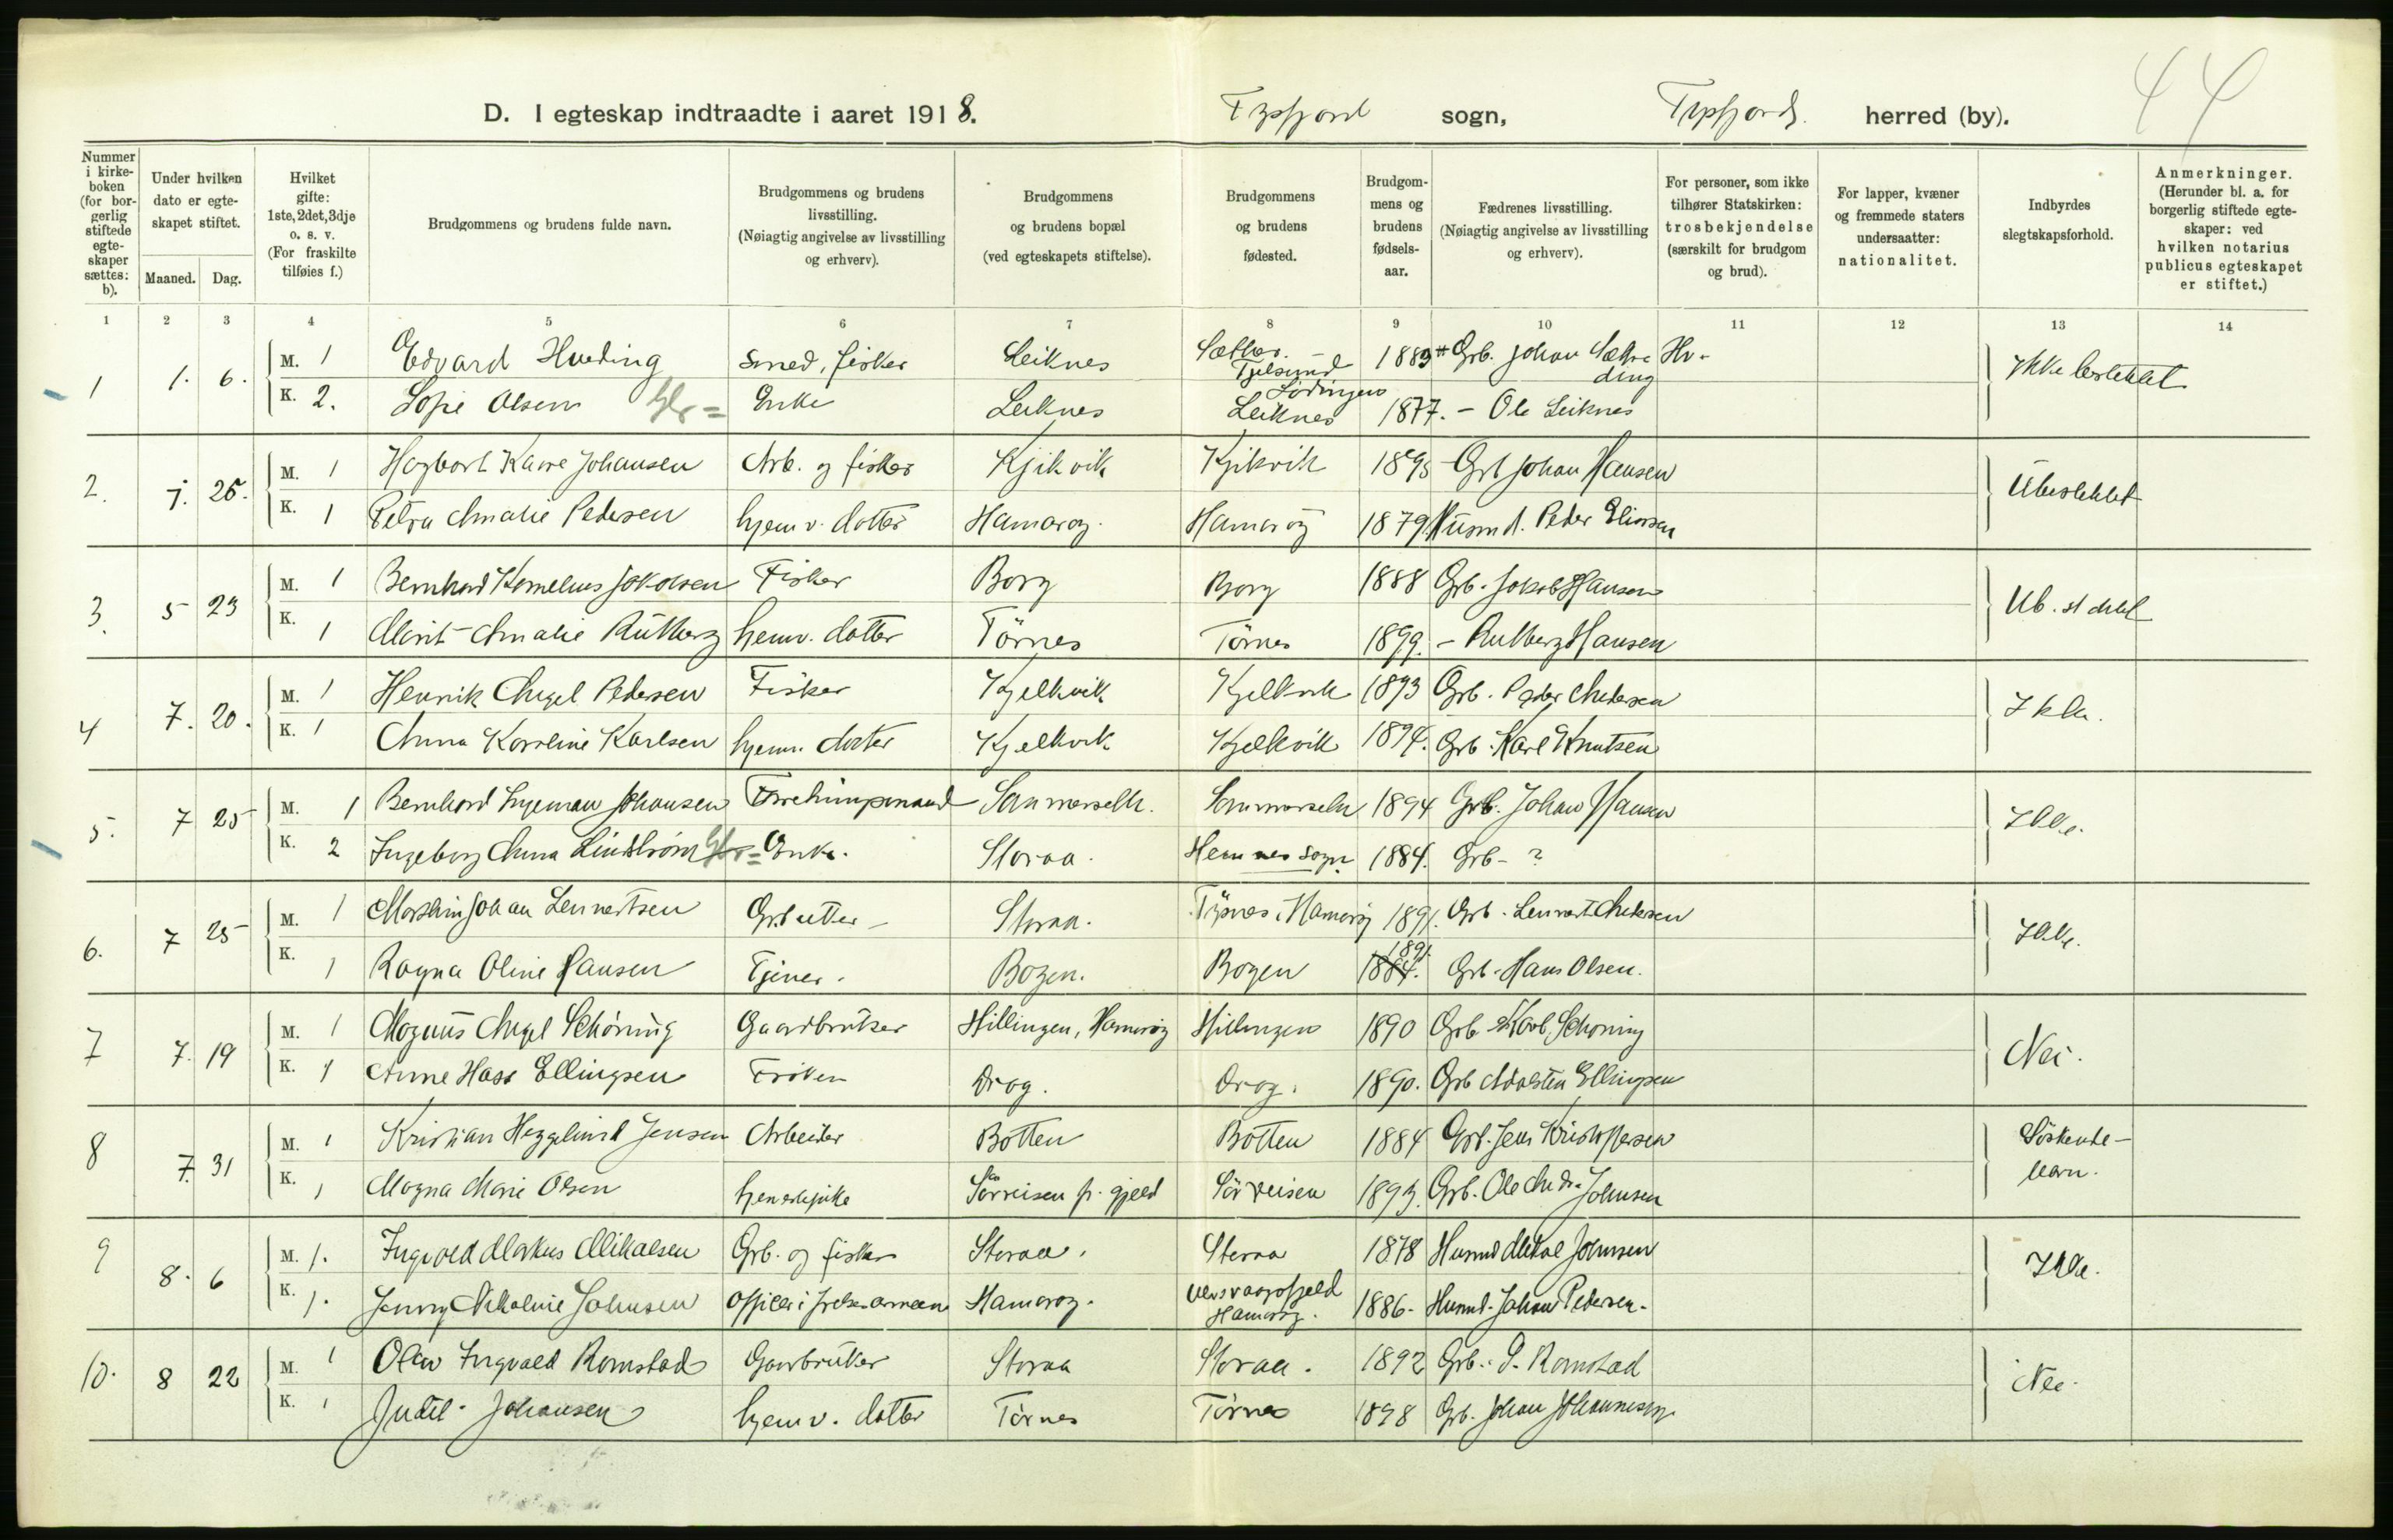 44
D. I egteskap indtraadte i aaret 1918. Tysfjord sogn, Tysfjord herred (by).
Nummer i kirkeboken (for borgerlig stiftede egteskaper sættes: b).
Under hvilken dato er egteskapet stiftet.
Maaned. Dag.
Hvilket gifte: 1ste, 2det, 3dje o. s. v. (For fraskilte tilføies f.)
Brudgommens og brudens fulde navn.
Brudgommens og brudens livsstilling. (Nøiagtig angivelse av livsstilling og erhverv).
Brudgommens og brudens bopæl (ved egteskapets stiftelse).
Brudgommens og brudens fødested.
Brudgommens og brudens fødselsaar.
Fædrenes livsstilling. (Nøiagtig angivelse av livsstilling og erhverv).
For personer, som ikke tilhører Statskirken: trosbekjendelse (særskilt for brudgom og brud).
For lapper, kvæner og fremmede staters undersaatter: nationalitet.
Indbyrdes slegtskapsforhold.
Anmerkninger. (Herunder bl. a. for borgerlig stiftede egteskaper: ved hvilken notarius publicus egteskapet er stiftet.)
1 2 3 4 5 6 7 8 9 10 11 12 13 14
1 1. 6. M. 1 Edvard Hveding Smed, fisker Leiknes Sæther. Tjelsund Lødingen 1883 Grb. Johan Sæther Hveding Ikke beslektet
K. 2. Sofie Olsen Enke Leiknes Leiknes 1877. - Ole Leiknes
2. 7. 25. M. 1 Hagbart Kaare Johansen Arb. og fisker Kjikvik Kjikvik 1895 Grb Johan Hansen Ubeslektet
K. 1 Petra Amalie Pedersen hjemv. datter Hamarøy. Hamarøy 1879 Husmd. Peder Eliassen
3. 5 23 M. 1 Bernhard Kornelius Jakobsen Fisker Borg Borg 1888 Grb. Jakob Hansen Ub. slektet
K. 1 Marit Amalie Rutberg hjemv. datter Tørnes Tørnes 1899. - Rutberg Hansen
4 7. 20. M. 1 Henrik Angel Pedersen Fisker Kjelkvik Kjelkvik 1893 Grb. Peder Andersen Ikke.
K. 1 Anna Karoline Karlsen hjemv. datter Kjelkvik Kjelkvik 1894. Grb. Karl Knutsen
5. 7 25 M. 1 Bernhard Ingeman Johansen 1894 Grb. Johan Hansen Ikke.
K. 2 Ingeborg Anna Lindstrøm Enke. Storaa. Hemnes sogn. 1884. Grb - ?
6. 7 25 M. 1 Martin Johan Lennertsen Storaa. Hamarøy 1891. Grb. Lennert Andersen Ikke.
K. 1 Ragna Oline Hansen Tjener. Bogen. Bogen 1884. 1891 Grb. Hans Olsen.
7 7. 19 M. 1 Magnus Angel Schøning Gaardbruker Hillingen, Hamarøy Hillingen 1890 Grb. Karl Schøning Nei.
K. 1 Anne Hass Ellingsen Frøken Drag. Drag. 1890. Grb Adolsten Ellingsen
8 7. 31 M. 1 Kristian Heggelund Jensen Arbeider Botten Botten 1884 Grb. Jens Kristoffersen Søskendebarn.
K. 1 Magna Marie Olsen Sørreisen pr. gjeld Sørreisen 1893. Grb. Ole Andr. Johnsen
9 8. 6 M. 1. Ingvald Markus Mikalsen Grb. og fisker Storaa. Storaa 1878 Husmd Mikal Johnsen Ikke.
K. 1. Jenny Nikoline Johnsen Officer i frelsesarmeen Hamarøy. Ulvsvaagsfjeld Hamarøy. 1886. Husmd. Johan Pedersen.
10. 8 22 M. 1 Olav Ingvald Romstad Gaardbruker Storaa Storaa. 1892 Grb. P. Romstad Nei.
K. 1 Judit Johansen hjemv. datter Tørnes Tørnes 1898 Grb. Johan Johannesen